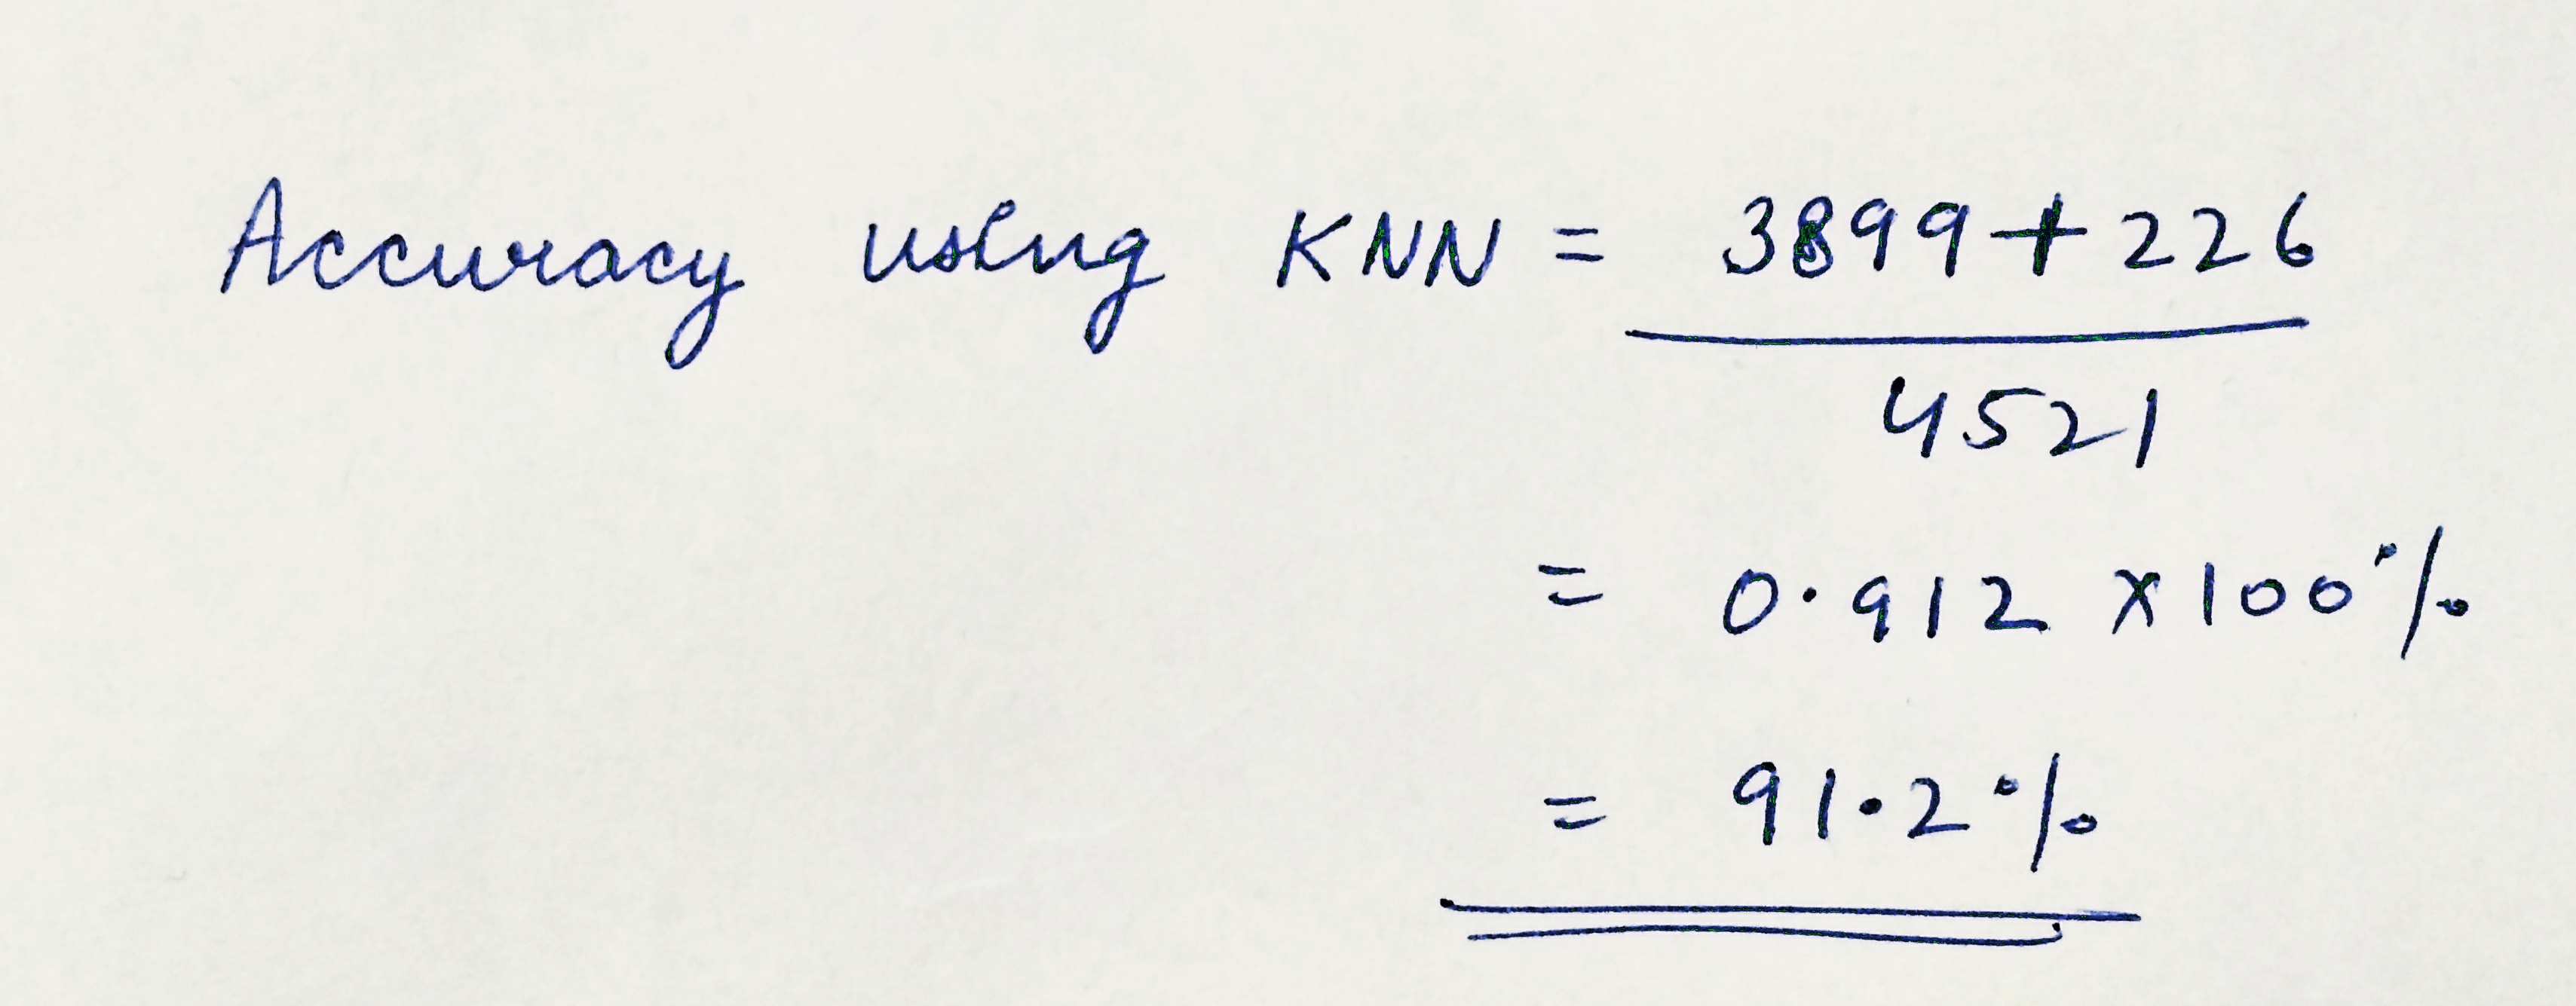 Accuracy using KNN = 3899 + 226
4521
= 0.912 x 100%
= 91.2%